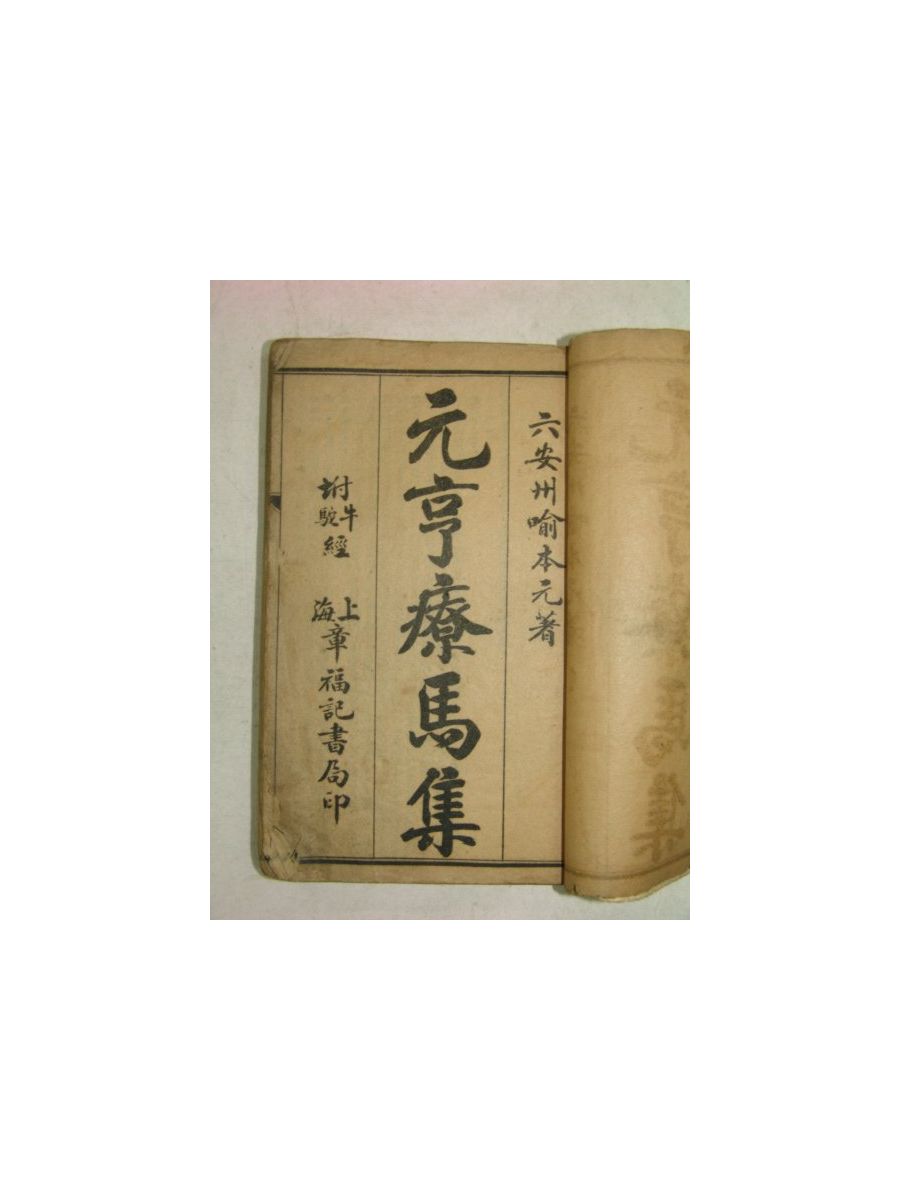 六安州喻本元著
元亨療馬集
坿牛駝經 上海章福記書局印